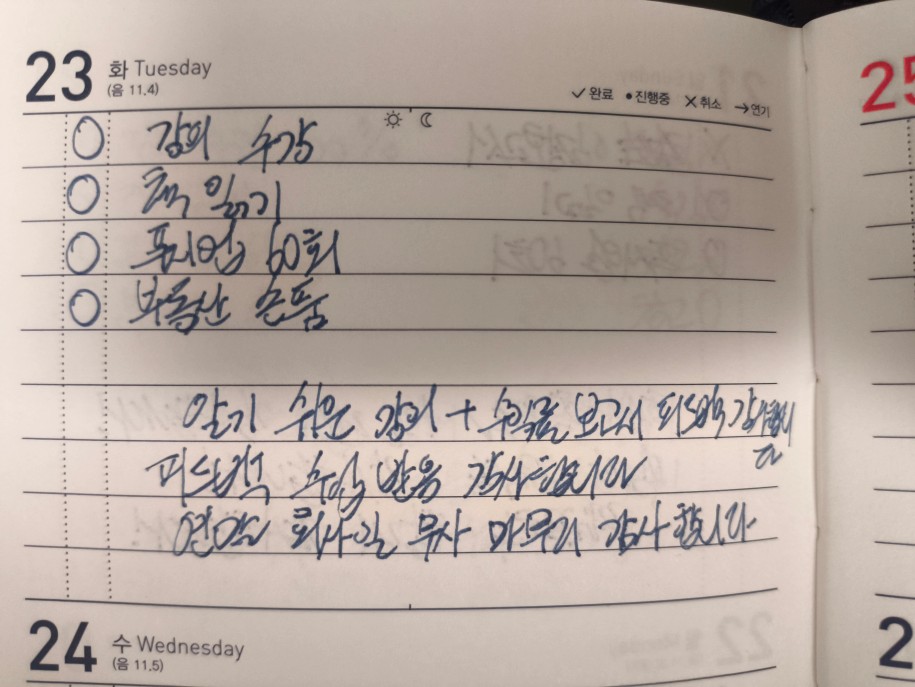 23 화 Tuesday
(음 11.4)
✓완료 •진행중 ✕취소 →연기
강의 수강
책 읽기
푸시업 60회
부동산 손품
알기 쉬운 강의 + 수익률 보고서 피드백 감사합니다
피드백 수익 반응 감사합니다
연말 회사일 무사 마무리 감사합니다
24 수 Wednesday
(음 11.5)
25
2